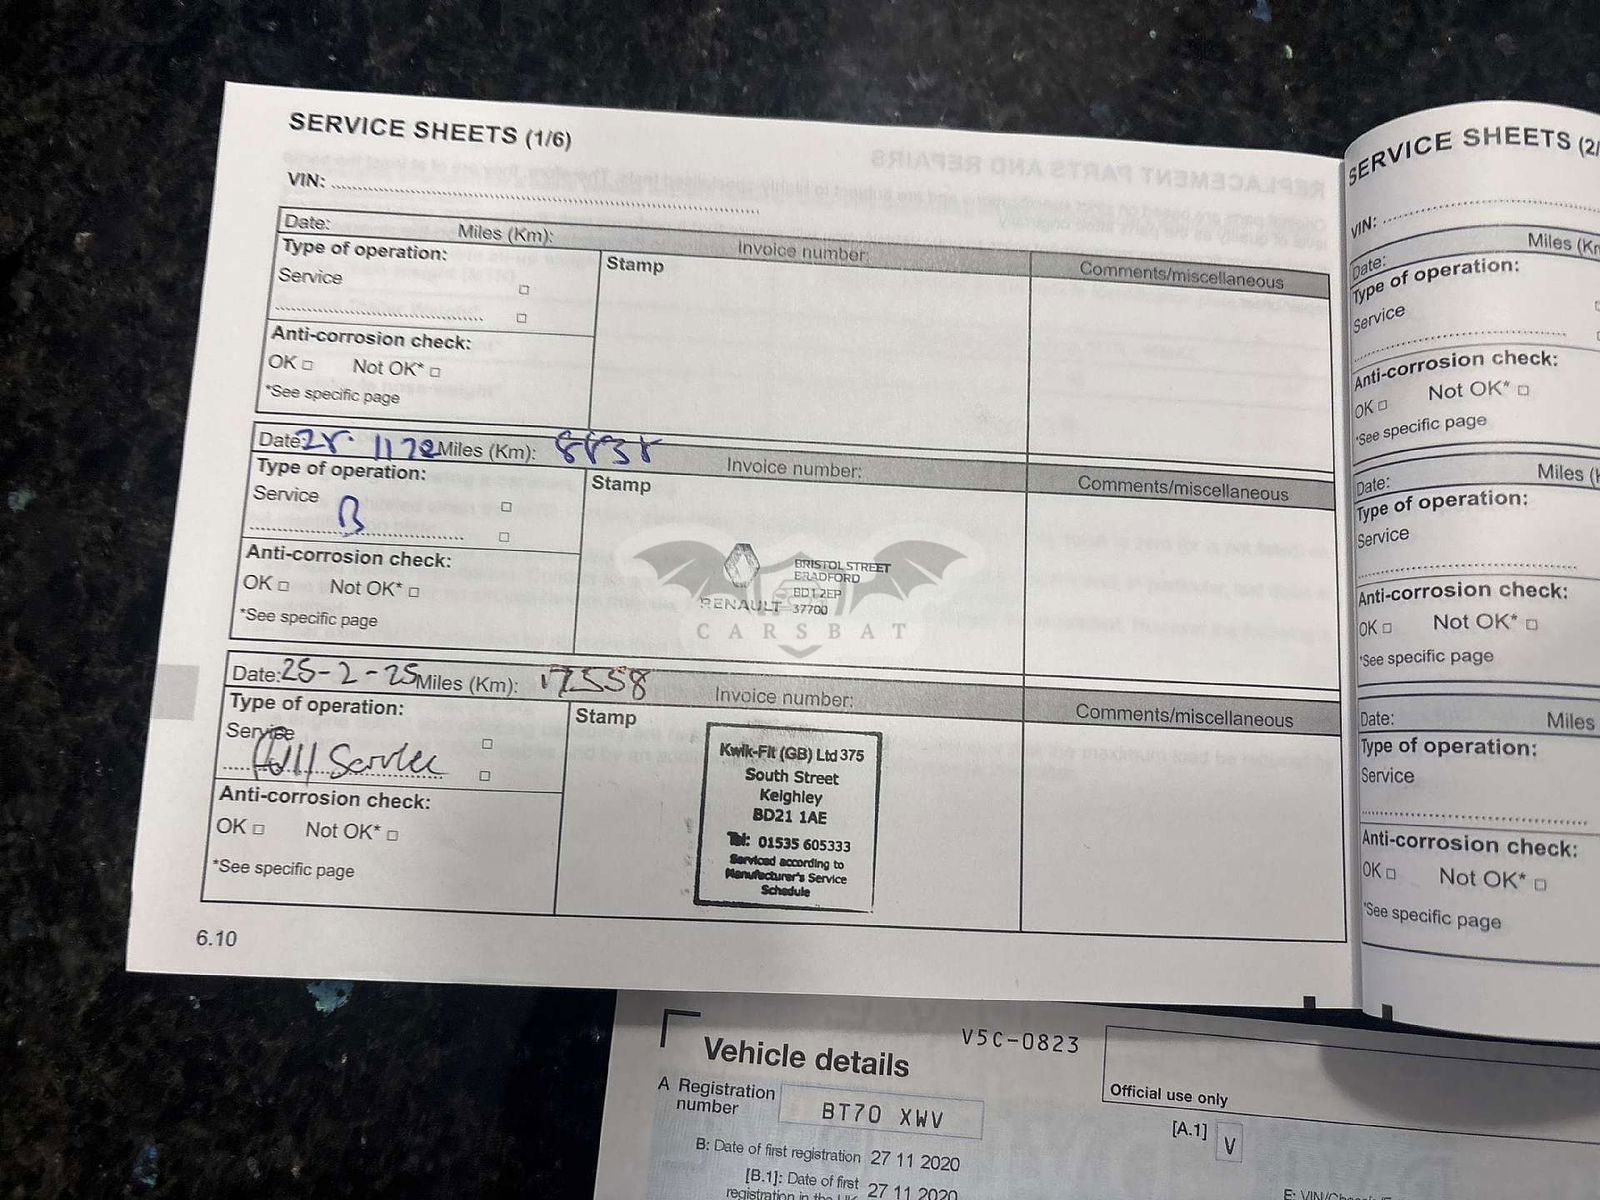 SERVICE SHEETS (1/6)
VIN:
Date: Miles (Km): Invoice number:
Type of operation: Stamp Comments/miscellaneous
Service
Anti-corrosion check:
OK □ Not OK* □
*See specific page
Date: Miles (Km): 8838 Invoice number:
Type of operation: Stamp Comments/miscellaneous
Service
B
Anti-corrosion check:
OK □ Not OK* □
*See specific page
BRISTOL STREET
BRADFORD
BD1 2EP
RENAULT 37700
CARSBAT
Date: 25-2-25 Miles (Km): 17558 Invoice number:
Type of operation: Stamp Comments/miscellaneous
Service
Full Service
Anti-corrosion check:
OK □ Not OK* □
*See specific page
Kwik-Fit (GB) Ltd 375
South Street
Keighley
BD21 1AE
Tel: 01535 605333
Serviced according to
Manufacturer's Service
Schedule
6.10
SERVICE SHEETS (2/
VIN:
Date: Miles (Km
Type of operation:
Service
Anti-corrosion check:
OK □ Not OK* □
*See specific page
Date: Miles (K
Type of operation:
Service
Anti-corrosion check:
OK □ Not OK* □
*See specific page
Date: Miles
Type of operation:
Service
Anti-corrosion check:
OK □ Not OK* □
*See specific page
Vehicle details V5C-0823
A Registration
number BT70 XWV
Official use only
[A.1] V
B: Date of first registration 27 11 2020
[B.1]: Date of first
registration in the UK 27 11 2020